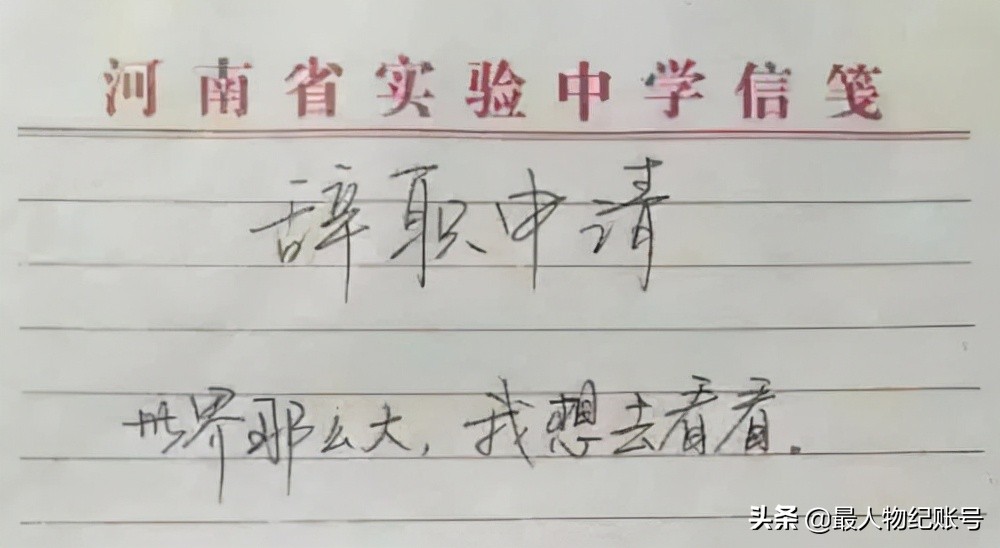 河南省实验中学信笺
辞职申请
世界那么大，我想去看看。
头条 @最人物纪账号